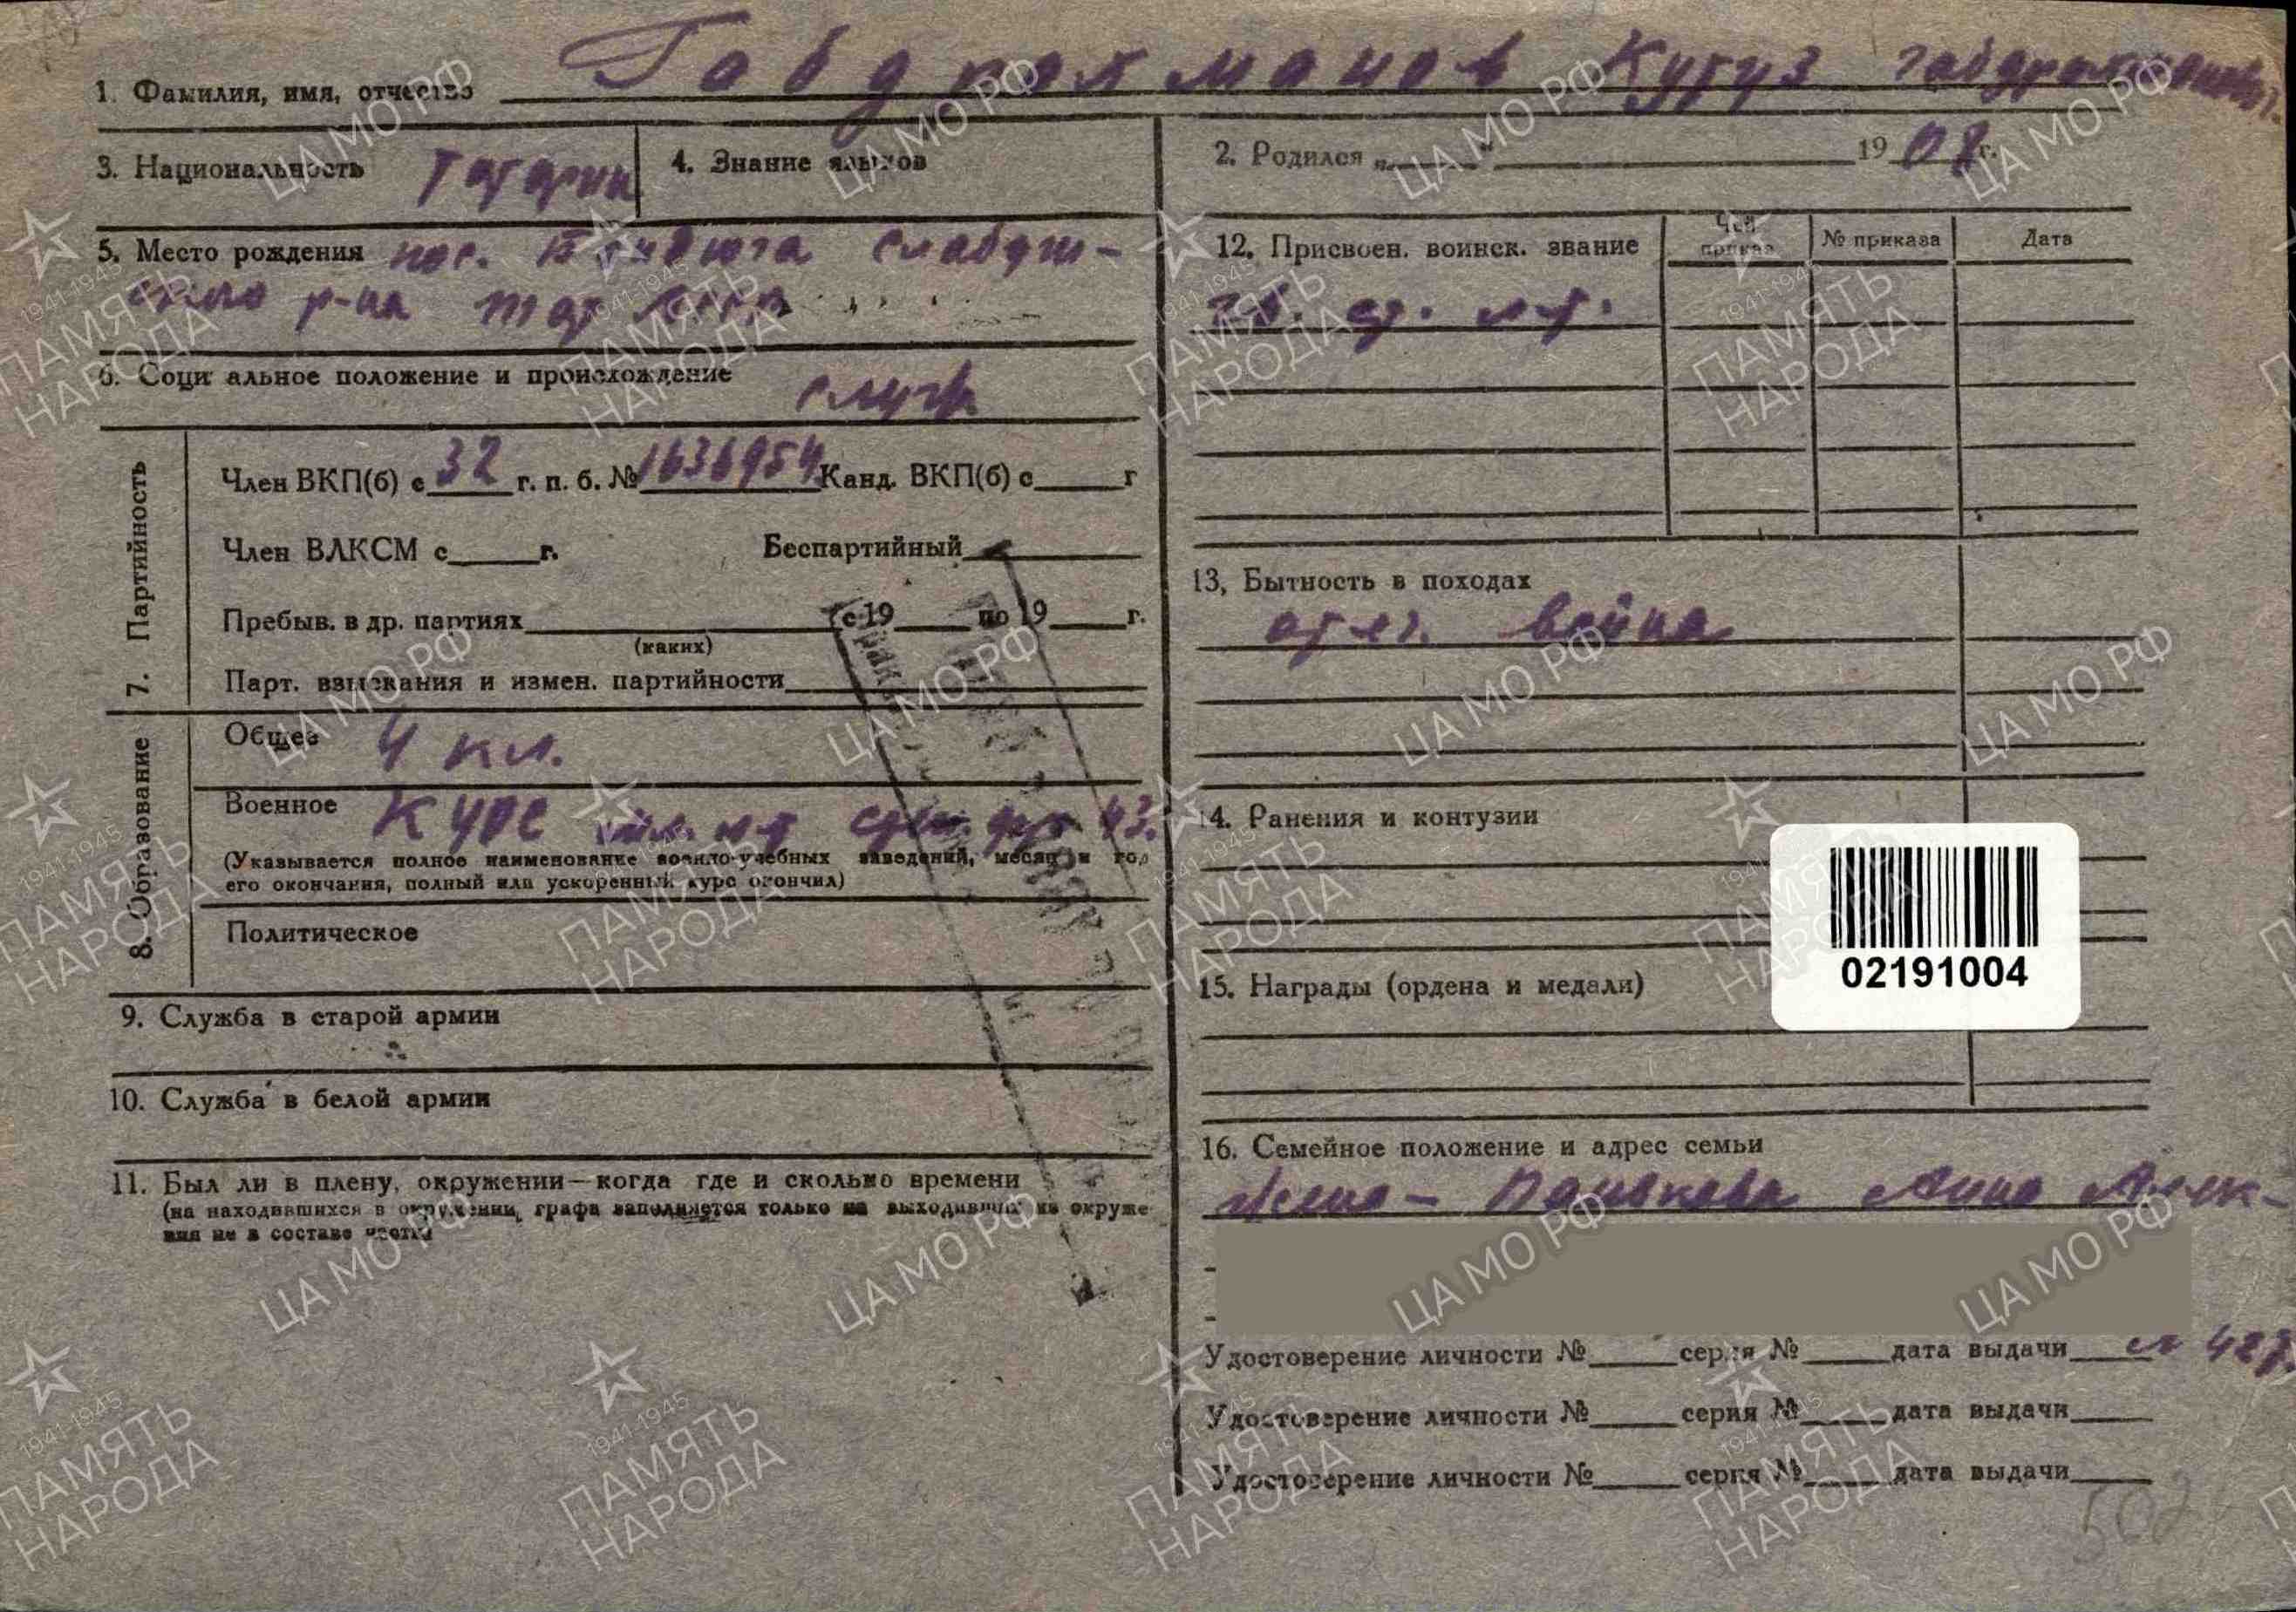 1. Фамилия, имя, отчество Габдрахманов Кутуз Габдрахманович
3. Национальность Татарин
4. Знание языков
2. Родился „ “ 1908 г.
5. Место рождения пос. Бондюга Елабуж-
ского р-на
6. Социальное положение и происхождение служ.
7. Партийность
Член ВКП(б) с 32 г. п. б. № 1636954 Канд. ВКП(б) с г
Член ВЛКСМ с г.
Беспартийный
Пребыв. в др. партиях с 19 по 19 г.
(каких)
Парт. взыскания и измен. партийности
8. Образование
Общее 4 кл.
Военное Курс мл. лт 43.
(Указывается полное наименование военно-учебных заведений, месяц и год
его окончания, полный или ускоренный курс окончил)
Политическое
9. Служба в старой армии
10. Служба в белой армии
11. Был ли в плену, окружении—когда где и сколько времени
(на находившихся в окружении, графа заполняется только на выходивших из окруже
ния не в составе части
12. Присвоен. воинск. звание
Чей приказ
№ приказа
Дата
гв. ст. л-т.
13, Бытность в походах
отеч. война
14. Ранения и контузии
02191004
15. Награды (ордена и медали)
16. Семейное положение и адрес семьи
Жена – Панькова Анна Алек-
Удостоверение личности № серия № дата выдачи
Удостоверение личности № серия № дата выдачи
Удостоверение личности № серия № дата выдачи
502
ЦА МО РФ
1941-1945
ПАМЯТЬ
НАРОДА